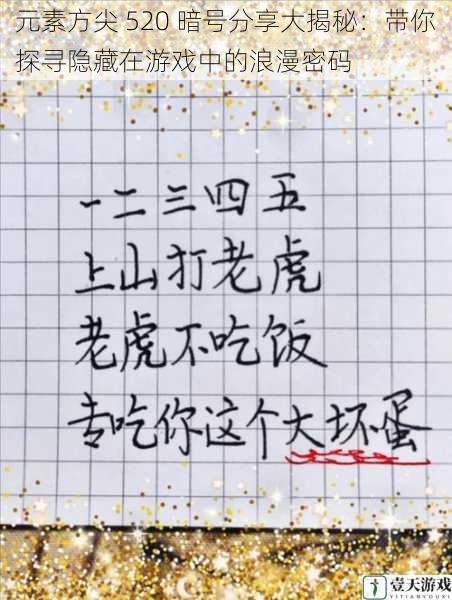 元素方尖 520 暗号分享大揭秘：带你
探寻隐藏在游戏中的浪漫密码
一二三四五
上山打老虎
老虎不吃饭
专吃你这个大坏蛋
壹天游戏
YITIANYOUXI